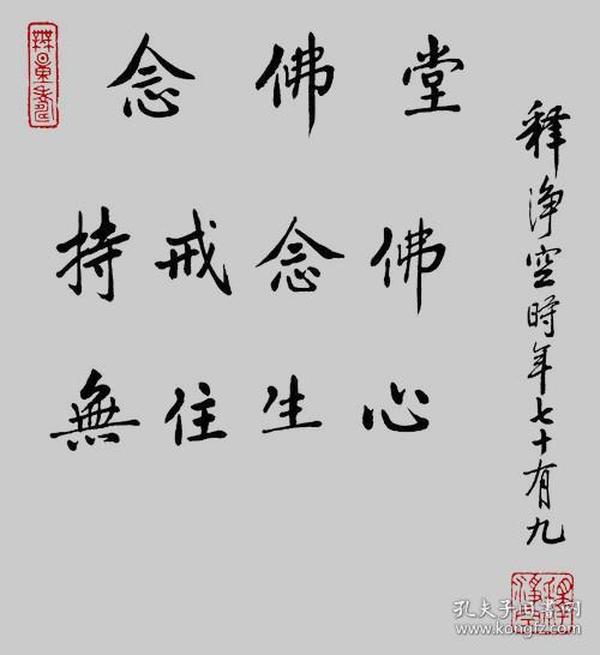 念佛堂
持戒念佛
無住生心
释淨空時年七十有九
孔夫子旧书网
www.kongfz.com